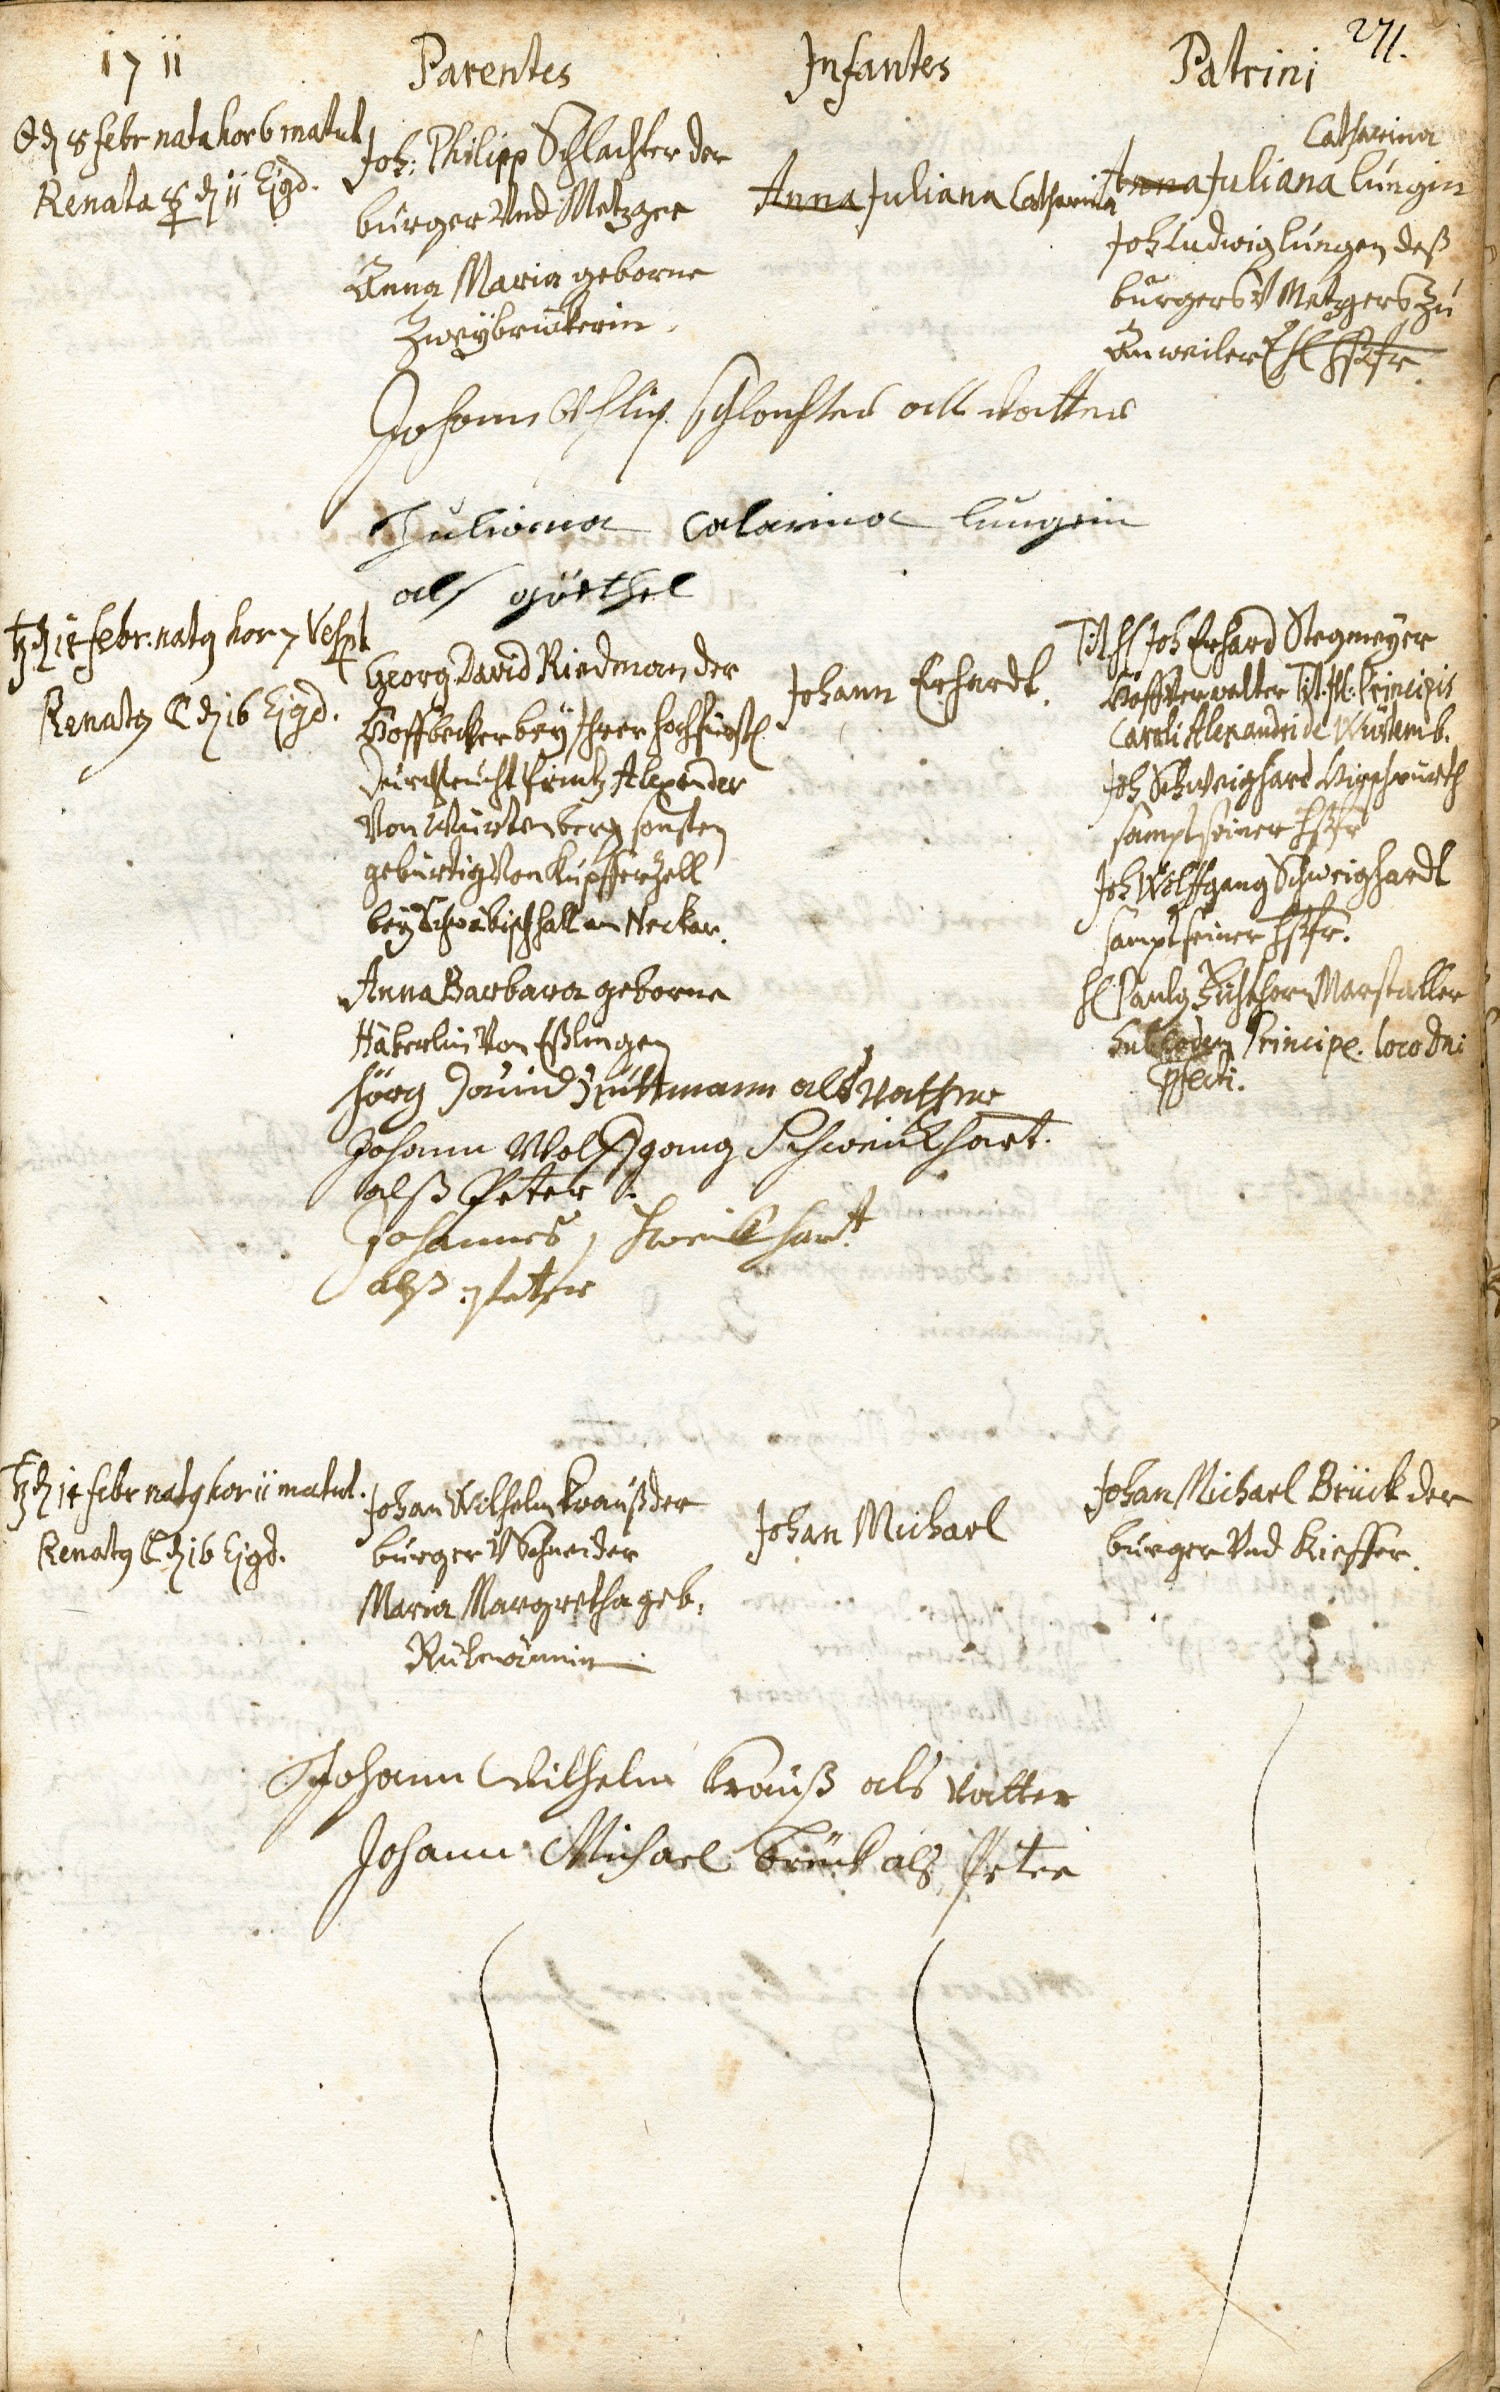 271.
1711 Parentes Infantes Patrini
☉ d 8 febr nata hor 6 matut
Renata ☿ d 11 Ejgd.
Joh: Philipp Schlachter der
burger Vnd Metzger
Anna Maria geborne
Zweybrückerin.
Anna Juliana Catharina
Catharina
Anna Juliana Lungin
Joh Ludwig Lungen deß
burgers V Metzgers Zu
Anweiler
Johann Philip Schlachter als Vatter
Juliana Catarina Lungin
als göthel
♄ d 14 febr. natg hor 7 Vespt
Renatg ☾ d 16 Ejgd.
Georg David Riedman der
Hoffbecker bey Ihrer hochfürstl
Durchleucht Printz Alexander
Von Würtenberg sonsten
gebürtig Von Kupfferzell
bey Schwäbischhall am Neckar.
Anna Barbara geborne
Häkerlin Von Eßlingen
Johann Erhardt.
Tit H Joh Erhard Stegmeyer
Hoffverwalter Tit. Principis
Caroli Alexandri de Würtemb.
Joh Schweighard
sampt seiner Hßfr
Joh Wolffgang Schweighardt
sampt seiner Hßfr.
H Paulg Marstaller
sub Eodem Principe. loco Dni
Jörg David als Vatter
Johann Wolffgang Schweickhart.
alß Peter
Johannes Schweickhart
alß Peter
♄ d 14 febr natg hor 11 matut.
Renatg ☾ d 16 Ejgd.
Johan Wilhelm Krauß der
burger V Schneider
Maria Margretha geb:
Johan Michael
Johan Michael Brück der
burger Vnd Kieffer.
Johann Wilhelm Krauß als Vatter
Johann Michael Brück als Peter